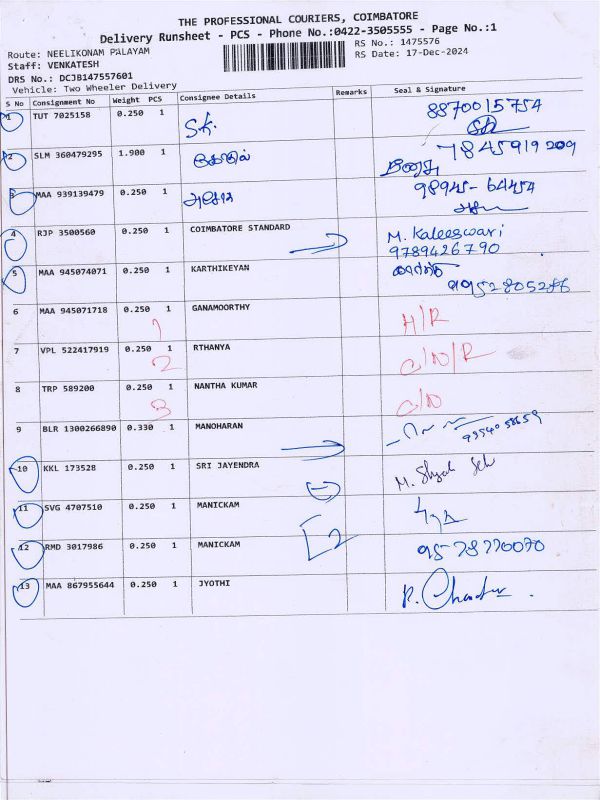 THE PROFESSIONAL COURIERS, COIMBATORE
Delivery Runsheet - PCS - Phone No.:0422-3505555 - Page No.:1
Route: NEELIKONAM PALAYAM
RS No.: 1475576
Staff: VENKATESH
RS Date: 17-Dec-2024
DRS No.: DCJB147557601
Vehicle: Two Wheeler Delivery
S No Consignment No Weight PCS Consignee Details Remarks Seal & Signature
1 TUT 7025158 0.250 1 SK. 8870015754
SK
2 SLM 360479295 1.900 1 7845919209
3 MAA 939139479 0.250 1 98945-64454
4 RJP 3500560 0.250 1 COIMBATORE STANDARD M. Kaleeswari
9789426790
5 MAA 945074071 0.250 1 KARTHIKEYAN
9952805286
6 MAA 945071718 0.250 1 GANAMOORTHY H/R
1
7 VPL 522417919 0.250 1 RTHANYA C/N/R
2
8 TRP 589200 0.250 1 NANTHA KUMAR C/N
3
9 BLR 1300266890 0.330 1 MANOHARAN
10 KKL 173528 0.250 1 SRI JAYENDRA
11 SVG 4707510 0.250 1 MANICKAM
12 RMD 3017986 0.250 1 MANICKAM 2 9578770070
13 MAA 867955644 0.250 1 JYOTHI